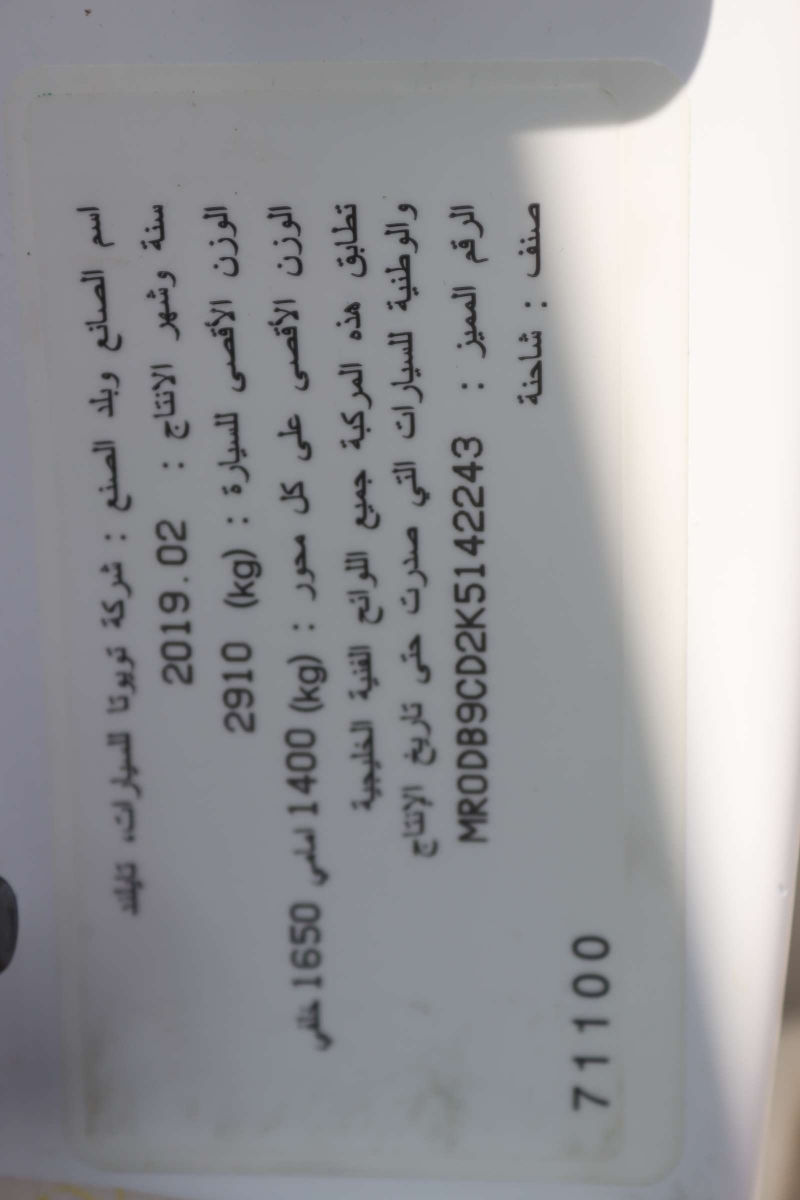 اسم الصانع وبلد الصنع : شركة تويوتا للسيارات، تايلاند
سنة وشهر الانتاج : 2019.02
الوزن الأقصى للسيارة : (kg) 2910
الوزن الأقصى على كل محور : (kg) 1400 امامي 1650 خلفي
تطابق هذه المركبة جميع اللوائح الفنية الخليجية
والوطنية للسيارات التي صدرت حتى تاريخ الإنتاج
الرقم المميز : MR0DB9CD2K5142243
صنف : شاحنة
71100